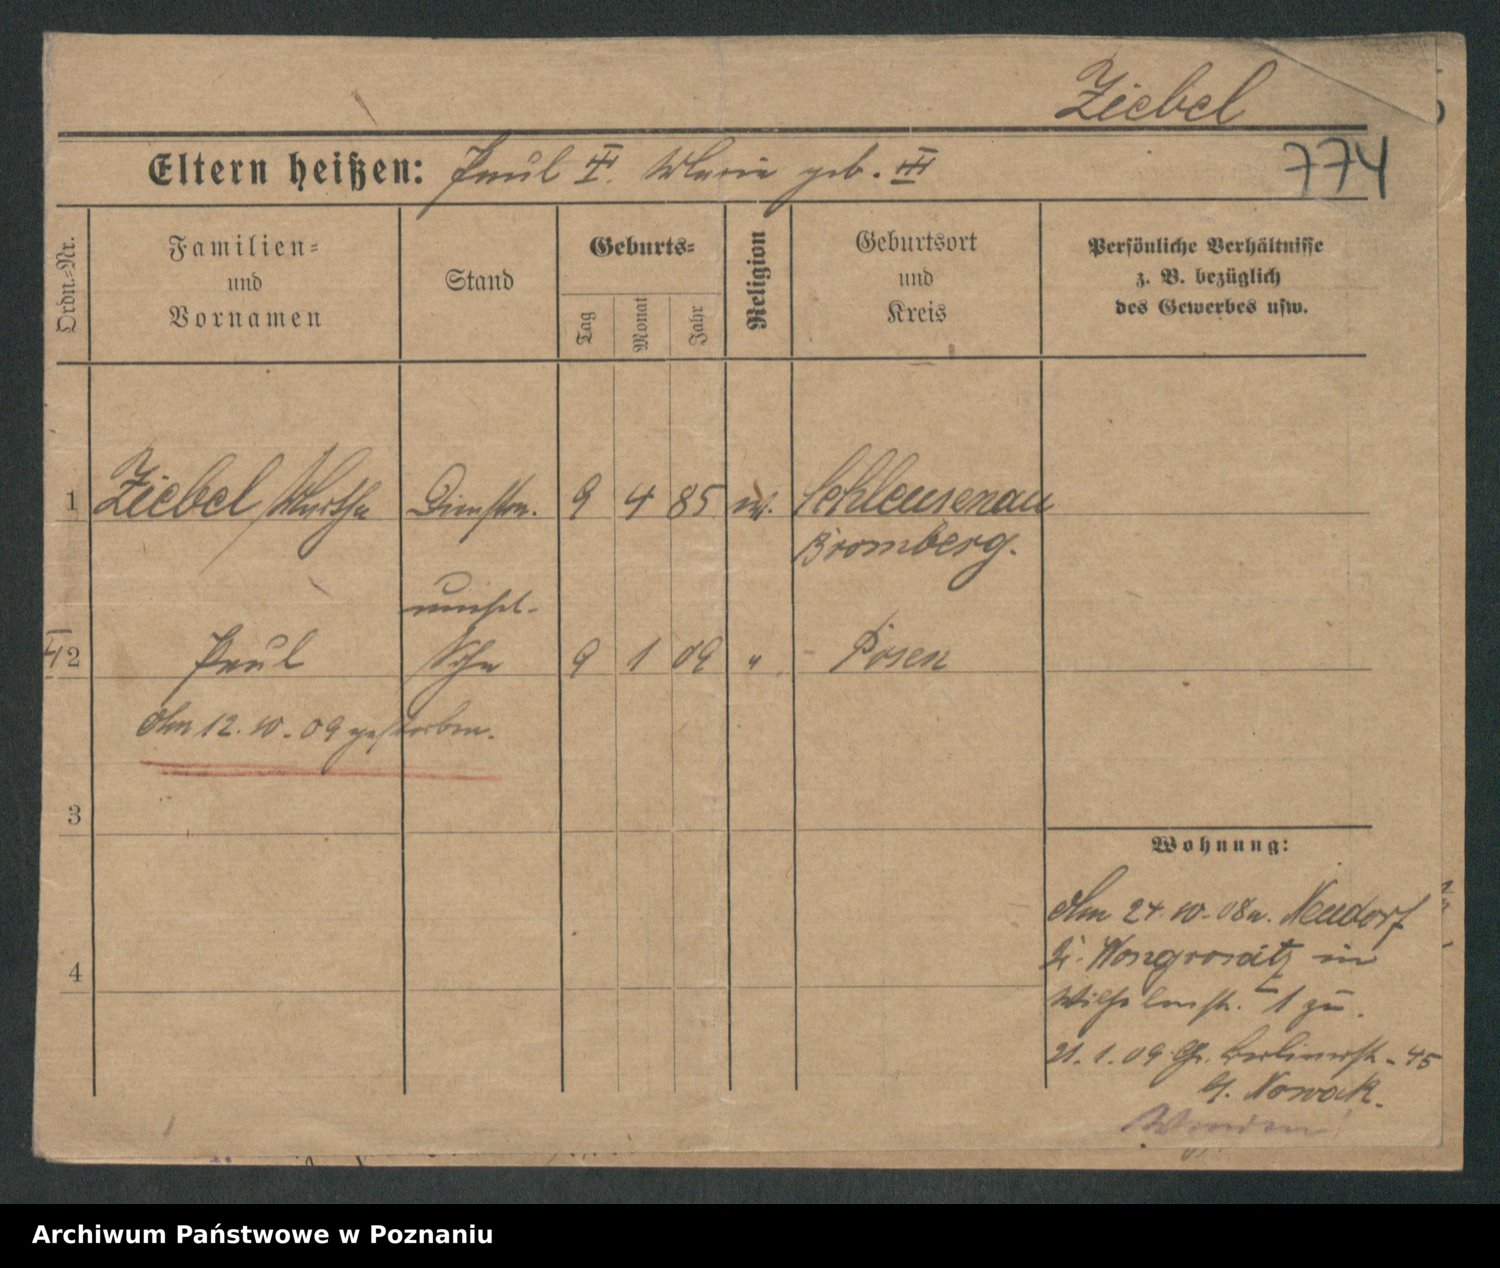 Ziebel
774
Eltern heißen: Paul III. Marie geb. III
Ordn.=Nr.
Familien=
und
Vornamen
Stand
Geburts=
Tag
Monat
Jahr
Religion
Geburtsort
und
Kreis
Persönliche Verhältnisse
z. B. bezüglich
des Gewerbes usw.
1 Ziebel Martha Dienstm. 9 4 85 ev. Schleusenau
Bromberg.
unehel.
2 Paul Sohn 9 1 09 " Posen
Am 12. 10. 09 gestorben.
3
Wohnung:
Am 24. 10. 08 v. Neudorf
Wongrowitz in
4
Wilhelmstr. 1 zu.
21. 1. 09 Gr. Berlinerstr. 45
b. Nowak.
Wenden!
Archiwum Państwowe w Poznaniu